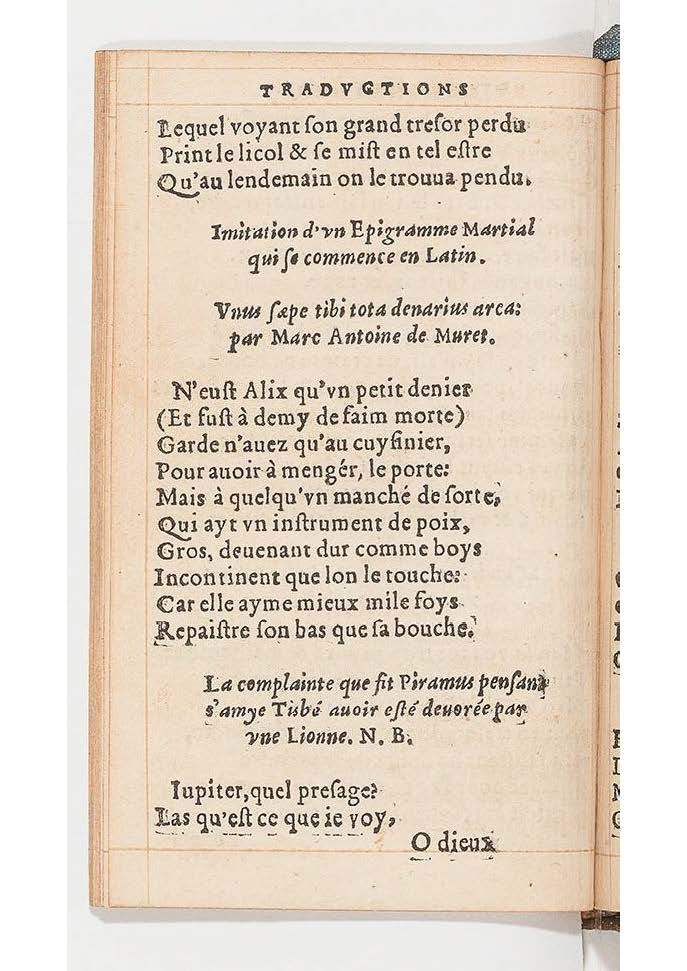 TRADVCTIONS
Lequel voyant ſon grand treſor perdu
Print le licol & ſe miſt en tel eſtre
Qu'au lendemain on le trouua pendu.
Imitation d'vn Epigramme Martial
qui ſe commence en Latin.
Vnus ſæpe tibi tota denarius arca:
par Marc Antoine de Muret.
N'euſt Alix qu'vn petit denier
(Et fuſt à demy de faim morte)
Garde n'auez qu'au cuyſinier,
Pour auoir à mengér, le porte:
Mais à quelqu'vn manché de ſorte,
Qui ayt vn inſtrument de poix,
Gros, deuenant dur comme boys
Incontinent que lon le touche:
Car elle ayme mieux mile foys
Repaiſtre ſon bas que ſa bouche.
La complainte que fit Piramus penſant
s'amye Tisbé auoir eſté deuorée par
vne Lionne. N. B.
Iupiter, quel preſage?
Las qu'eſt ce que ie voy,
O dieux